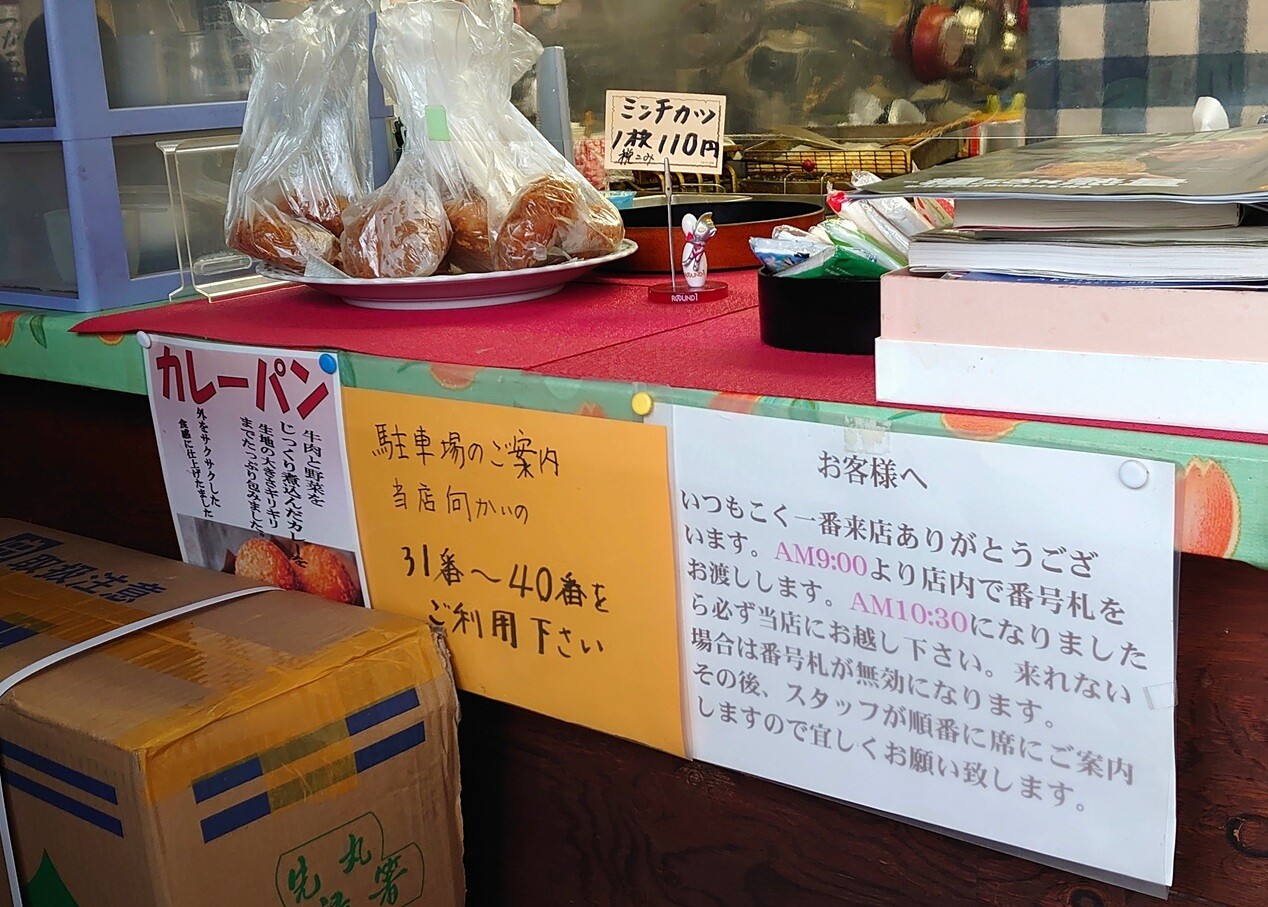 ミンチカツ
1枚110円
税こみ
ROUND1
カレーパン
牛肉と野菜を
じっくり煮込んだカレーを
生地の大きさギリギリ
までたっぷり包みました。
外をサクサクした
食感に仕上げました
駐車場のご案内
当店向かいの
31番～40番を
ご利用下さい
お客様へ
いつもこく一番来店ありがとうござ
います。AM9:00より店内で番号札を
お渡しします。AM10:30になりました
ら必ず当店にお越し下さい。来れない
場合は番号札が無効になります。
その後、スタッフが順番に席にご案内
しますので宜しくお願い致します。
取扱注意
丸
先
箸